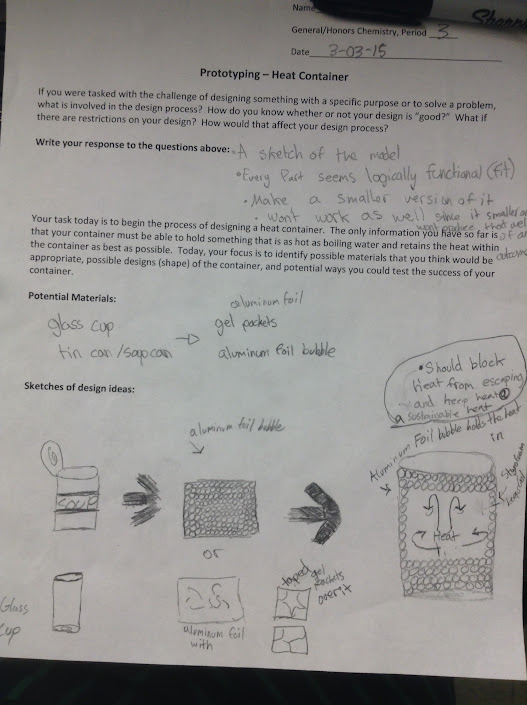 Name
Sharpie
General/Honors Chemistry, Period 3
Date 3-03-15
Prototyping – Heat Container
If you were tasked with the challenge of designing something with a specific purpose or to solve a problem,
what is involved in the design process? How do you know whether or not your design is "good?" What if
there are restrictions on your design? How would that affect your design process?
Write your response to the questions above: • A sketch of the model
• Every Part seems logically functional (fit)
• Make a smaller version of it
• Wont work as well since it smaller
wont produce that well
of an
outcome
Your task today is to begin the process of designing a heat container. The only information you have so far is
that your container must be able to hold something that is as hot as boiling water and retains the heat within
the container as best as possible. Today, your focus is to identify possible materials that you think would be
appropriate, possible designs (shape) of the container, and potential ways you could test the success of your
container.
Potential Materials:
aluminum foil
glass cup
gel packets
tin can/soap can
aluminum foil bubble
Sketches of design ideas:
• Should block
Heat from escaping
and keep heat @
a sustainable heat
aluminum foil bubble
Aluminum Foil bubble holds the heat
in
Styrofoam
SOUP
Heat
or
Glass
Cup
aluminum foil
with
taped gel
packets
over it